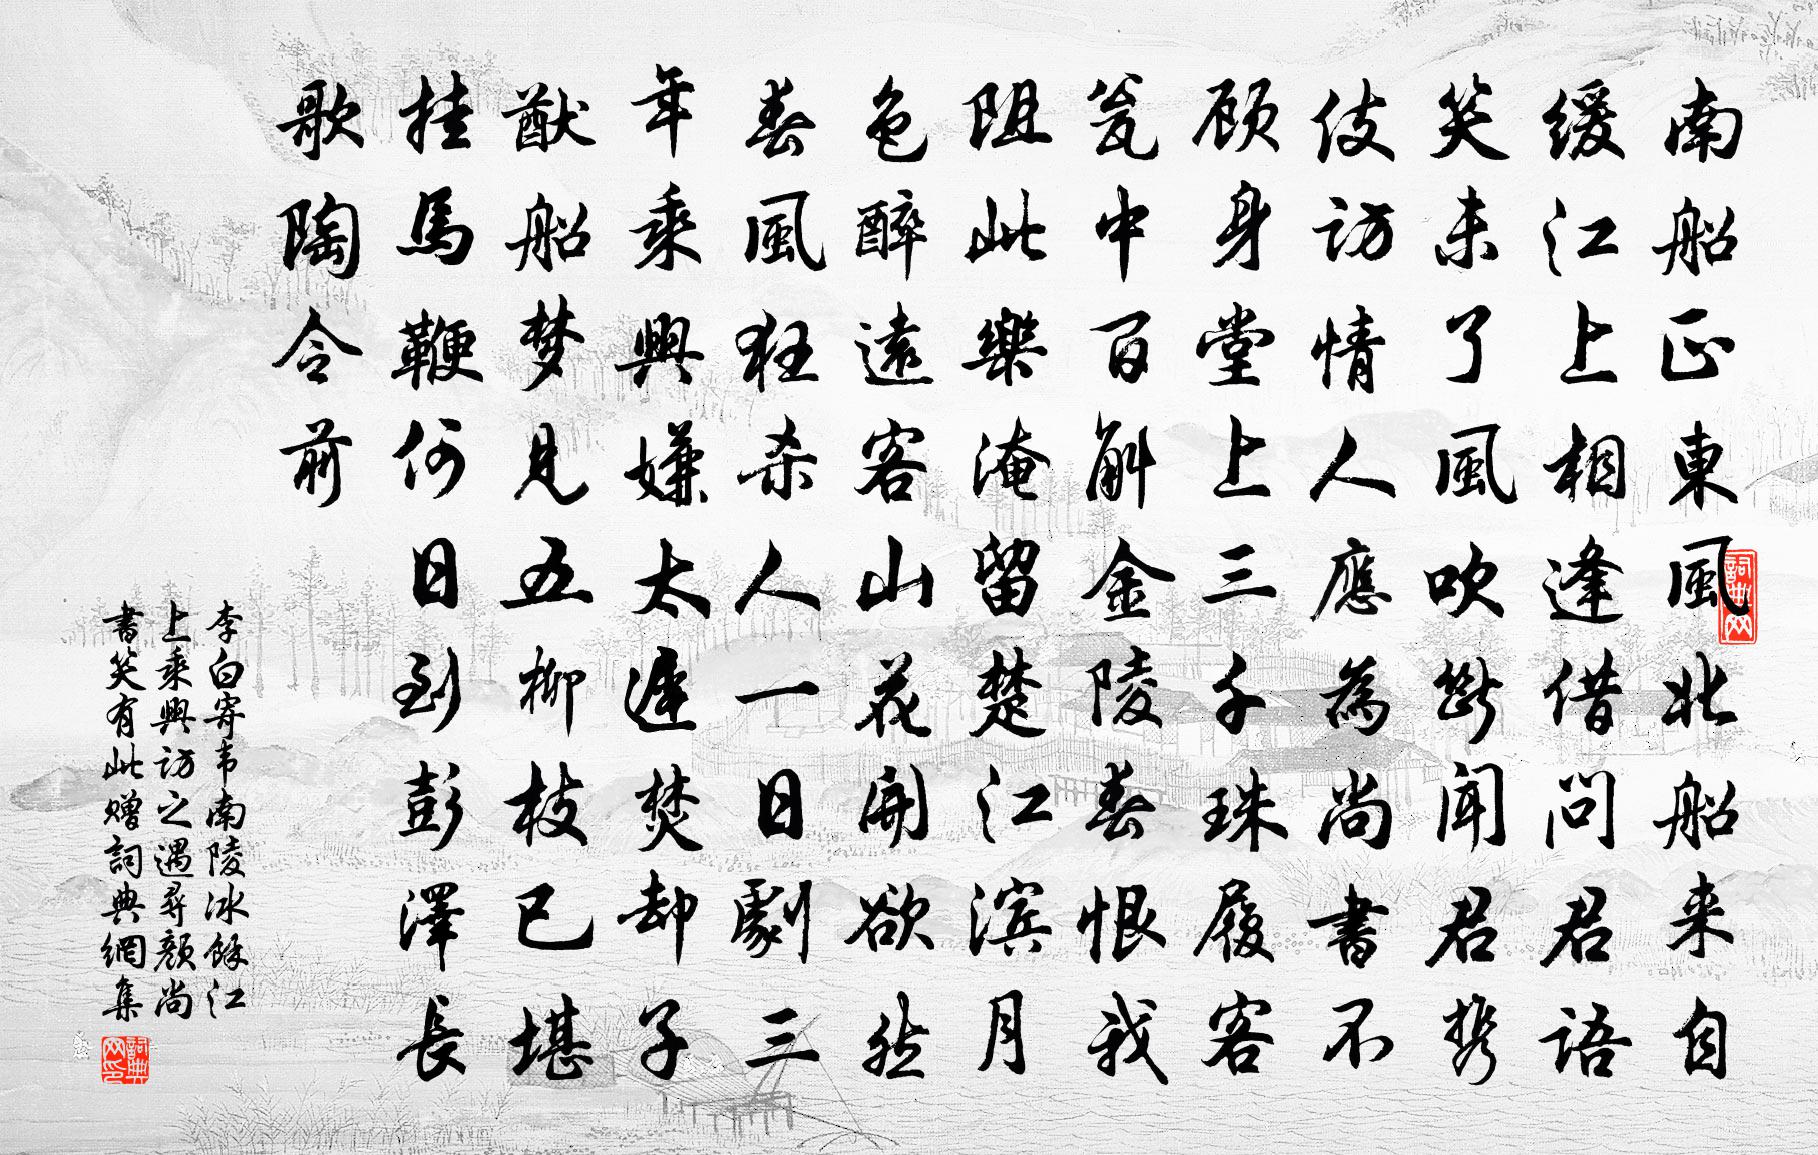 南船正東風北船来自
缓江上相逢借问君語
笑未了風吹断闻君携
伎访情人應為尚書不
顾身堂上三千珠履客
瓮中百斛金陵春恨我
阻此樂淹留楚江滨月
色醉遠客山花開欲然
春風狂杀人一日劇三
年乘興嫌太遲焚却子
猷船梦見五柳枝已堪
挂馬鞭何日到彭澤長
歌陶令前
李白寄韦南陵冰餘江
上乘興访之遇尋颜尚
書笑有此赠詞典網集
詞典网
詞典网印